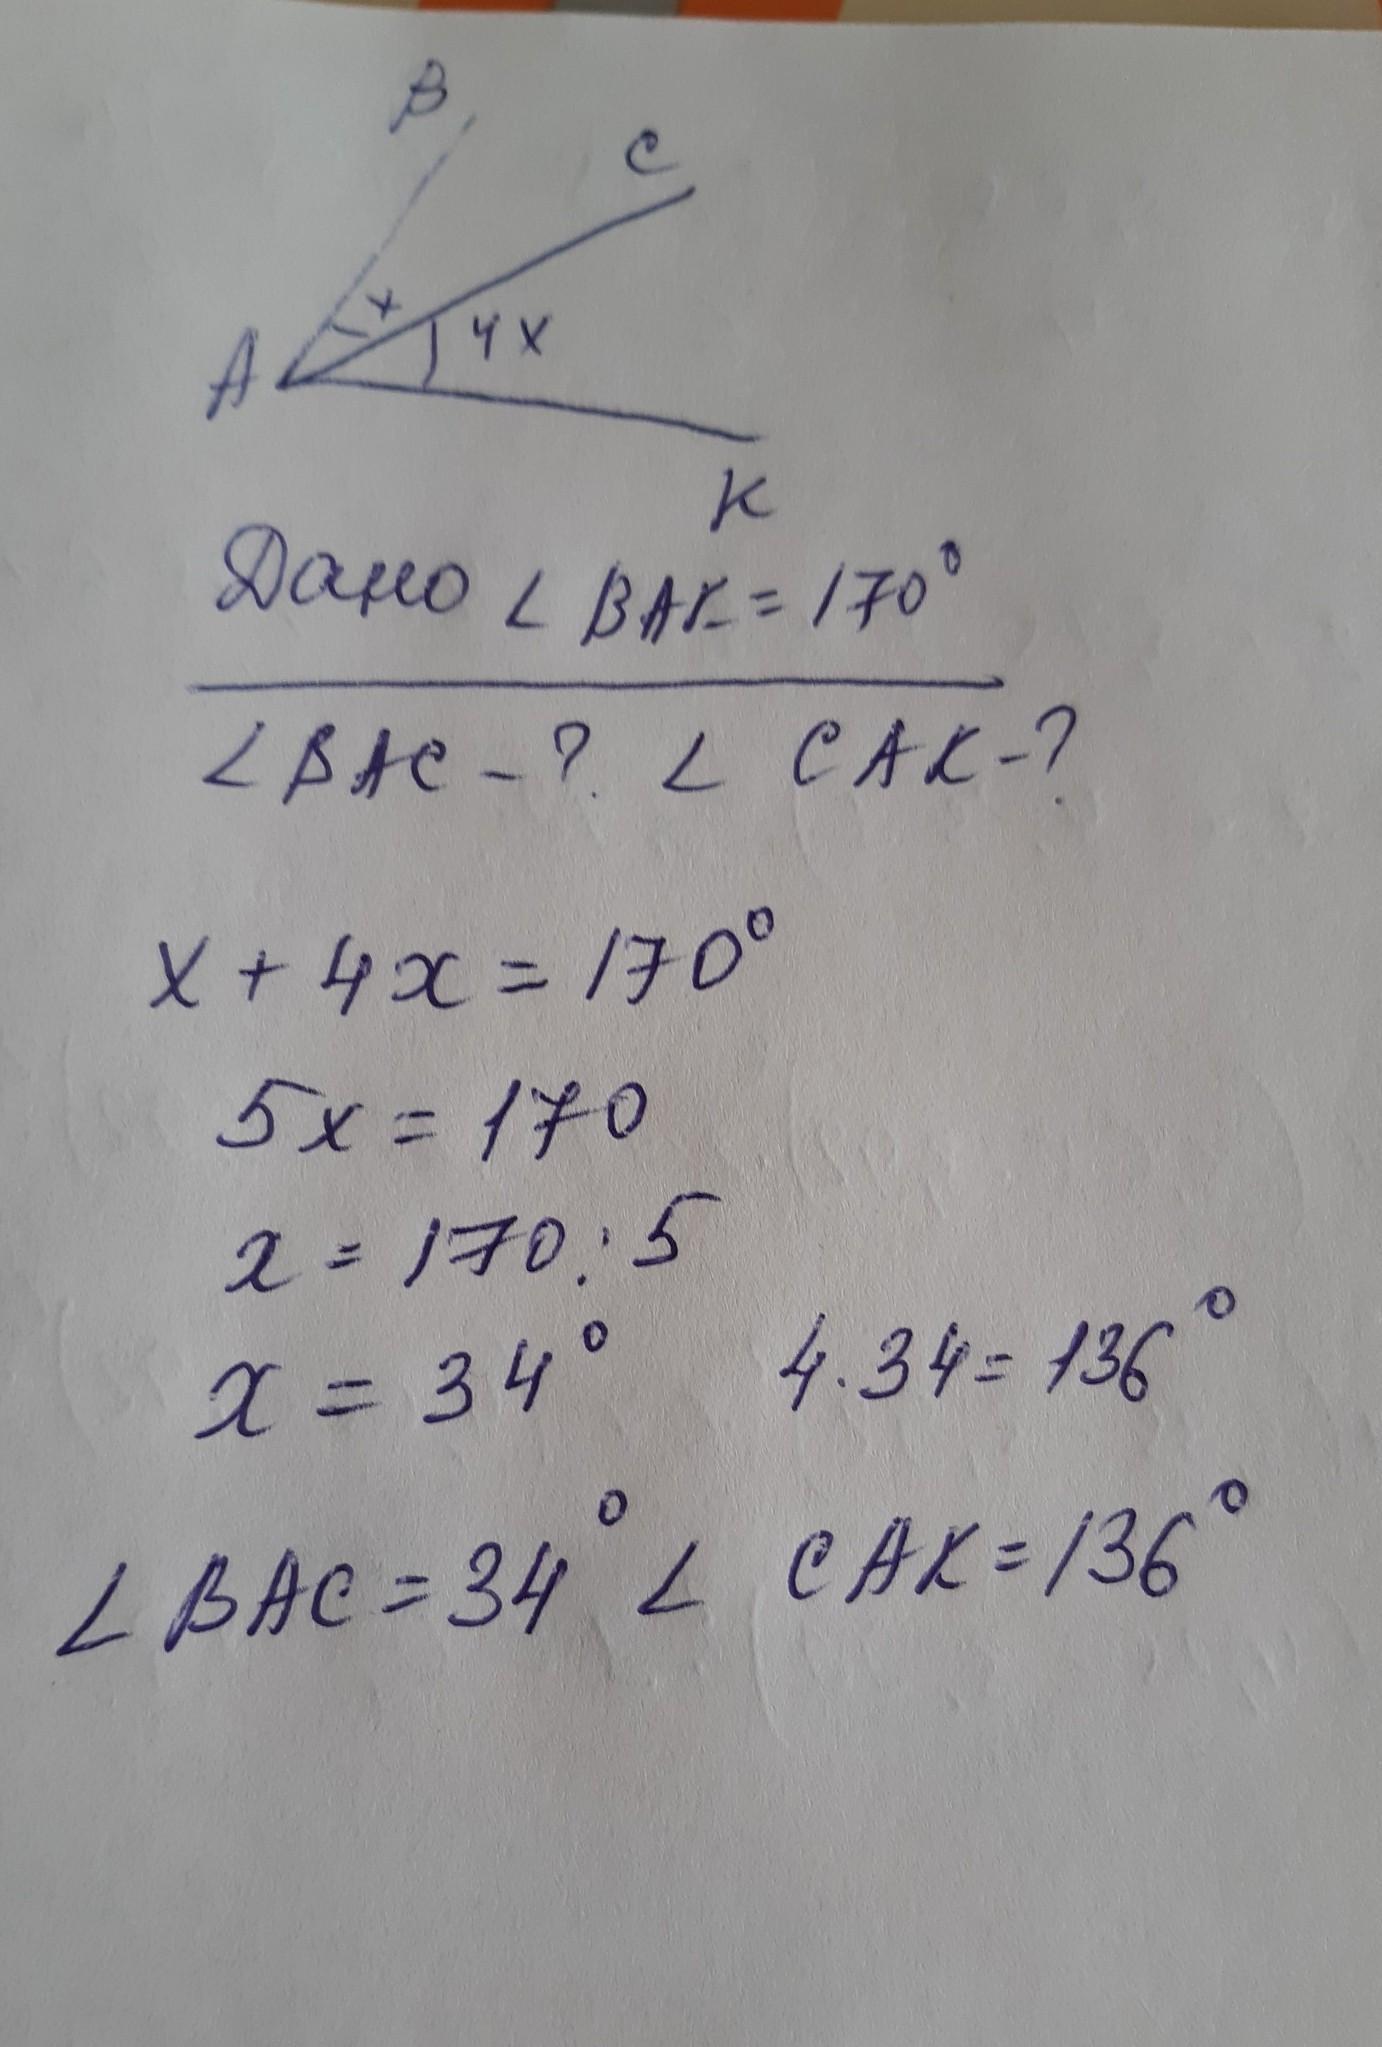 B
C
x
A
4x
K
Дано ∠BAK=170°
∠BAC-? ∠ CAK-?
x+4x=170°
5x=170
x=170:5
x=34° 4·34=136°
∠BAC=34° ∠ CAK=136°